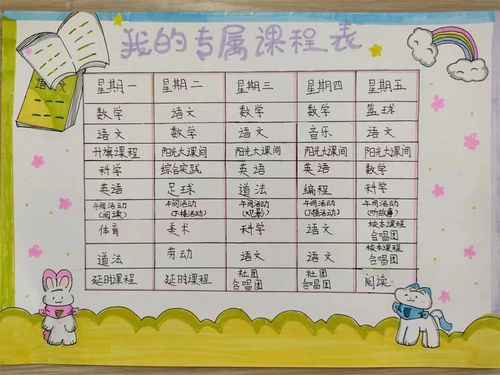 我的专属课程表
语文
星期一 星期二 星期三 星期四 星期五
数学 语文 数学 数学 篮球
语文 数学 语文 音乐 语文
升旗课程 阳光大课间 阳光大课间 阳光大课间 阳光大课间
科学 综合实践 英语 英语 数学
英语 足球 道法 编程 科学
午间活动 午间活动 午间活动 午间活动 午间活动
(阅读) (下棋活动) (观影) (下棋活动) (听故事)
体育 美术 科学 语文 校本课程
合唱团
道法 劳动 语文 语文 校本课程
合唱团
延时课程 延时课程 社团 社团 阅读
合唱团 合唱团